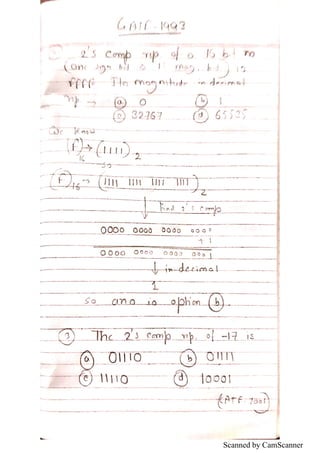 GATE - 1993
2's comp rep of a 16 bit no
(one sign bit & 15 mag. bit) is
FFFF The magnitude in decimal
rep → (a) 0 (b) 1
(c) 32767 (d) 65535
We know
(F)16 → (1111)2
so
(F)16 → (1111 1111 1111 1111)2
↓ find 2's comp
0000 0000 0000 0000
+ 1
0000 0000 0000 0001
↓ in decimal
1
so ans is option (b).
(2) The 2's comp rep. of -17 is
(a) 01110 (b) 01111
(c) 11110 (d) 10001
Scanned by CamScanner